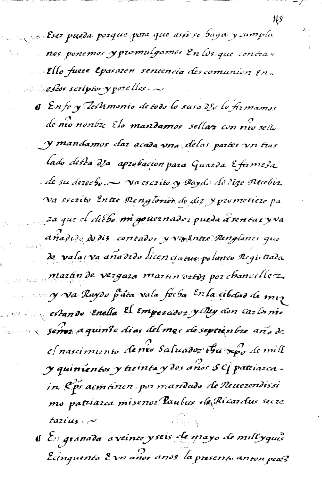 Eser pueda porque para que assi se haga y cumpla
nos ponemos y promulgamos En los que contra
Ello fuere E parezen sentencia de scomunion En
estos scriptos y por ellos.
En fe y Testimonio de todo lo suso dho lo firmamos
de nro nonbre E lo mandamos sellar con nro sello
y mandamos dar a cada una de las partes un tras
lado desta dha aprobacion para Guarda E firmeza
de su derecho. va escrito y Raydo do dize Recebir
va escrito Entre Renglones do diz y prometiero pa
ra que el dicho mi governador pueda asentar y va
añadido do diz contador y va entre Renglones que
do vala; va añadido licenciatus polanco Registrada
martin de vergara martin ortiz por chanceller
y va Raydo pata vala fecha En la cibdad de
estando en ella El Emperador y Rey don carlos nro
señor a quinze dias del mes de septiembre año de
el nascimento de nro Salvador ihu xpo de mill
y quinientos y treinta y dos años
por mandado de Reverendissi
mo patriarca mi señor Paulus de Ricardus secre
tarius.
En granada a veinte y seis de mayo de mill y quis
E cinquenta E un años la presento anton perez